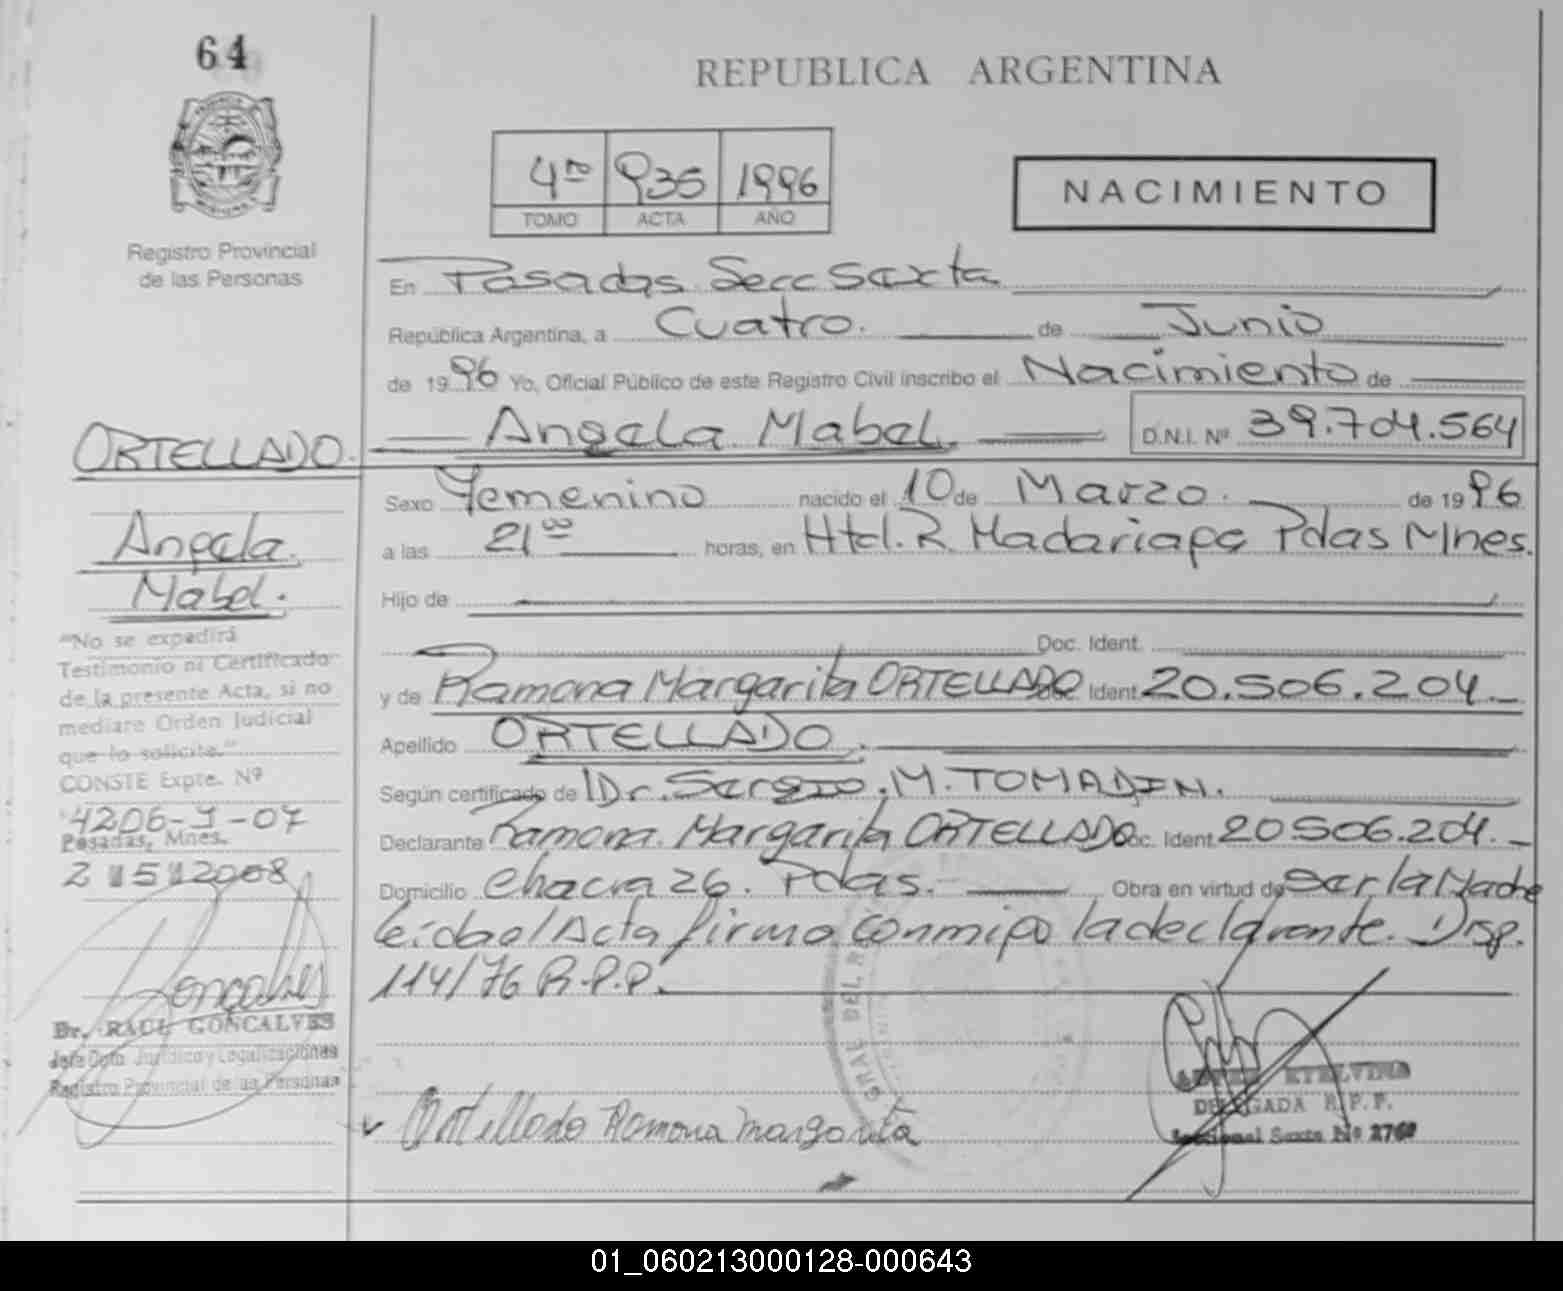 64
REPUBLICA ARGENTINA
4to 935 1996
TOMO ACTA AÑO
NACIMIENTO
Registro Provincial
de las Personas
En Posadas Secc Sexta
República Argentina, a Cuatro. de Junio
de 1996 Yo, Oficial Público de este Registro Civil inscribo el Nacimiento de
Angela Mabel. D.N.I. Nº 39.704.564
ORTELLADO.
Angela.
Mabel.
Sexo Femenino nacido el 10 de Marzo. de 1996
a las 21ºº horas, en Htal. R. Madariaga Pdas Mnes.
Hijo de
Doc. Ident.
y de Ramona Margarita ORTELLADO Doc. Ident. 20.506.204.
Apellido ORTELLADO.
Según certificado de Dr. Sergio. M. TOMADIN.
Declarante Ramona. Margarita ORTELLADO Doc. Ident. 20506.204.
Domicilio Chacra 26. Pdas. Obra en virtud de Ser la Madre
Leída el Acta firma conmigo la declarante. Disp.
114/76 R.P.P.
"No se expedirá
Testimonio ni Certificado
de la presente Acta, si no
mediare Orden Judicial
que lo solicite."
CONSTE Expte. Nº
4206-J-07
Posadas, Mnes.
2 5 2008
Goncalves
Dr. RAUL GONCALVES
Jefe Dpto. Jurídico y Legalizaciones
Registro Provincial de las Personas
Ortellado Ramona Margarita
GRAL DEL R
ETELVINA
DELEGADA R.P.P.
Seccional Sexta Nº 2760
01_060213000128-000643